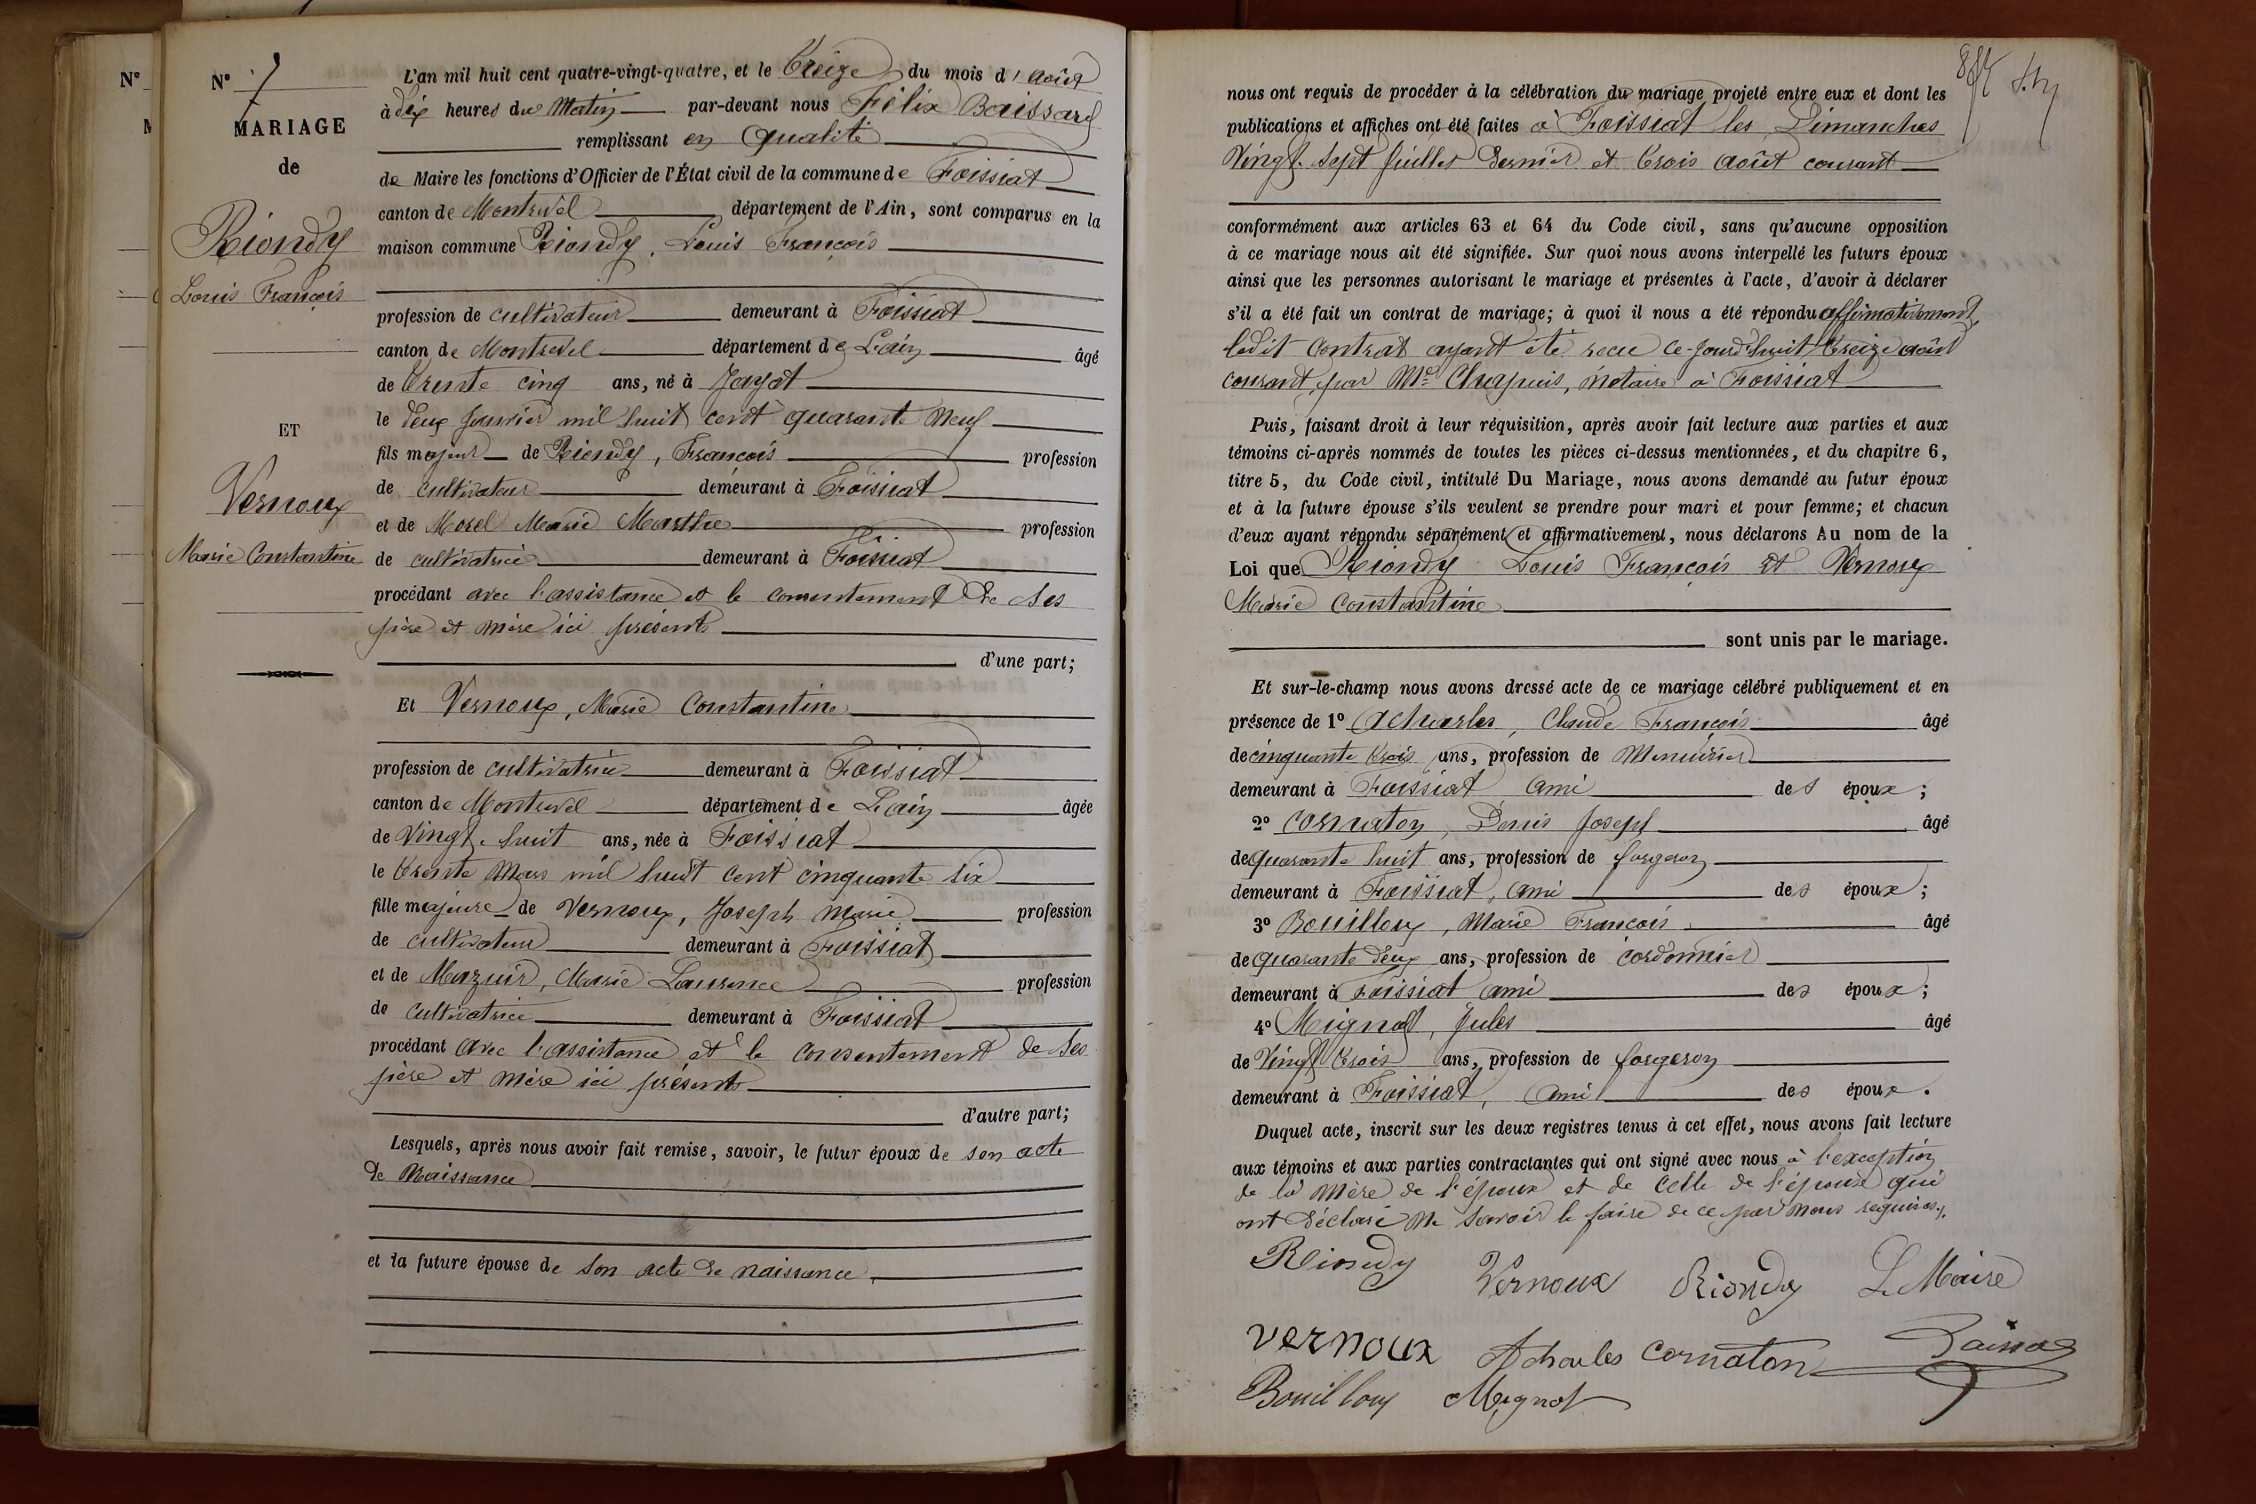 N°
M
N° 7
MARIAGE
de
Riondy
Louis François
ET
Vernoux
Marie Constantine
L'an mil huit cent quatre-vingt-quatre, et le treize du mois d'août
à dix heures du Matin par-devant nous Félix Boissard
remplissant en qualité
de Maire les fonctions d'Officier de l'État civil de la commune de Foissiat
canton de Montrevel département de l'Ain, sont comparus en la
maison commune Riondy, Louis François
profession de cultivateur demeurant à Foissiat
canton de Montrevel département de L'ain âgé
de trente cinq ans, né à Jayat
le deux Janvier mil huit cent quarante neuf
fils majeur de Riondy, François profession
de cultivateur demeurant à Foissiat
et de Morel Marie Marthe profession
de cultivatrice demeurant à Foissiat
procédant avec l'assistance et le consentement de ses
père et mère ici présents
d'une part;
Et Vernoux, Marie Constantine
profession de cultivatrice demeurant à Foissiat
canton de Montrevel département de L'ain âgée
de vingt-huit ans, née à Foissiat
le trente Mars mil huit cent cinquante six
fille majeure de Vernoux, Joseph Marie profession
de cultivateur demeurant à Foissiat
et de Mazuir, Marie Laurence profession
de cultivatrice demeurant à Foissiat
procédant avec l'assistance et le consentement de ses
père et mère ici présents
d'autre part;
Lesquels, après nous avoir fait remise, savoir, le futur époux de son acte
de Naissance
et la future épouse de son acte de naissance.
nous ont requis de procéder à la célébration du mariage projeté entre eux et dont les
publications et affiches ont été faites à Foissiat les Dimanches
Vingt-sept Juillet dernier et trois août courant
conformément aux articles 63 et 64 du Code civil, sans qu'aucune opposition
à ce mariage nous ait été signifiée. Sur quoi nous avons interpellé les futurs époux
ainsi que les personnes autorisant le mariage et présentes à l'acte, d'avoir à déclarer
s'il a été fait un contrat de mariage; à quoi il nous a été répondu affirmativement,
ledit contrat ayant été recu ce-jourd'huit treize août
courant, par Me Chapuis, notaire à Foissiat
Puis, faisant droit à leur réquisition, après avoir fait lecture aux parties et aux
témoins ci-après nommés de toutes les pièces ci-dessus mentionnées, et du chapitre 6,
titre 5, du Code civil, intitulé Du Mariage, nous avons demandé au futur époux
et à la future épouse s'ils veulent se prendre pour mari et pour femme; et chacun
d'eux ayant répondu séparément et affirmativement, nous déclarons Au nom de la
Loi que Riondy Louis François et Vernoux
Marie Constantine
sont unis par le mariage.
Et sur-le-champ nous avons dressé acte de ce mariage célébré publiquement et en
présence de 1° Acharles, Claude François âgé
de cinquante trois ans, profession de Menuisier
demeurant à Foissiat ami des époux;
2° Cornaton, Denis Joseph âgé
de quarante huit ans, profession de forgeron
demeurant à Foissiat, ami des époux;
3° Bouilloux, Marie François âgé
de quarante deux ans, profession de cordonnier
demeurant à Foissiat ami des époux;
4° Mignot, Jules âgé
de Vingt trois ans, profession de forgeron
demeurant à Foissiat, ami des époux.
Duquel acte, inscrit sur les deux registres tenus à cet effet, nous avons fait lecture
aux témoins et aux parties contractantes qui ont signé avec nous à l'exception
de la mère de l'époux et de celle de l'épouse qui
ont déclaré ne savoir le faire de ce par nous requises.
Riondy Vernoux Riondy Le Maire
vernoux Acharles Cornaton Boissard
Bouilloux Mignot